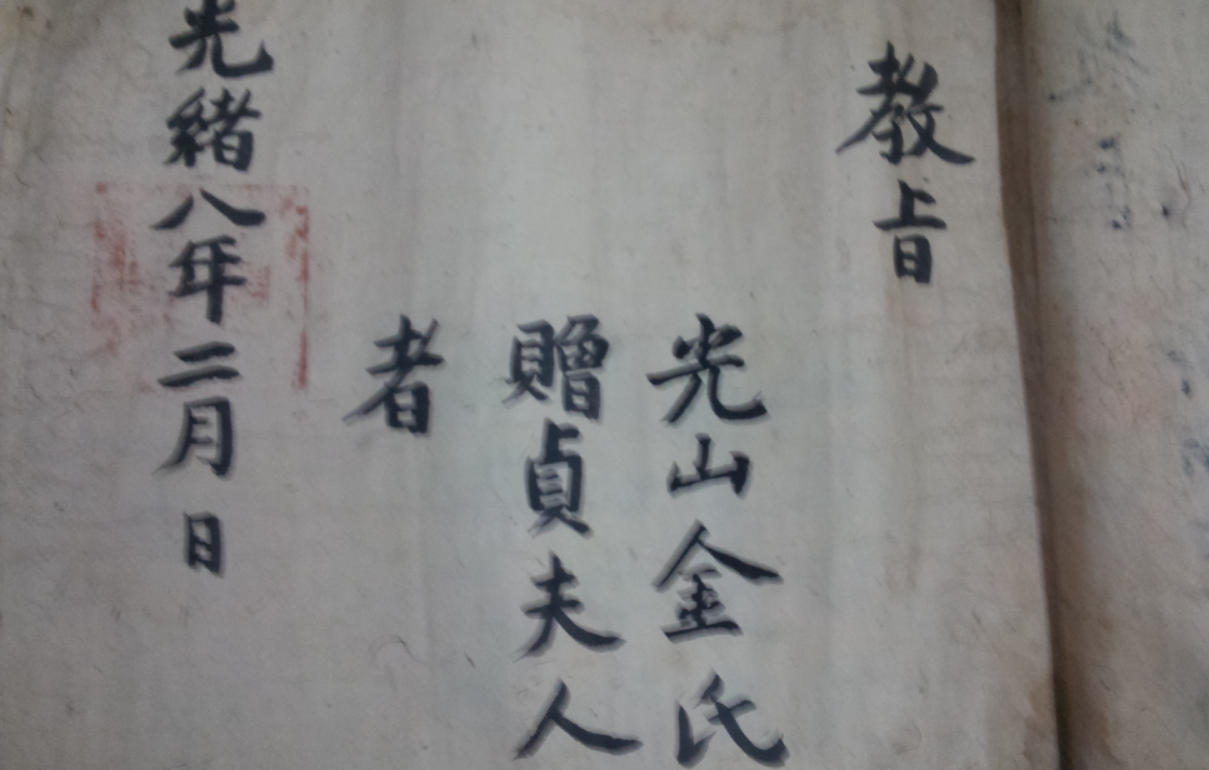 教旨
光山金氏
贈貞夫人
者
光緖八年二月 日